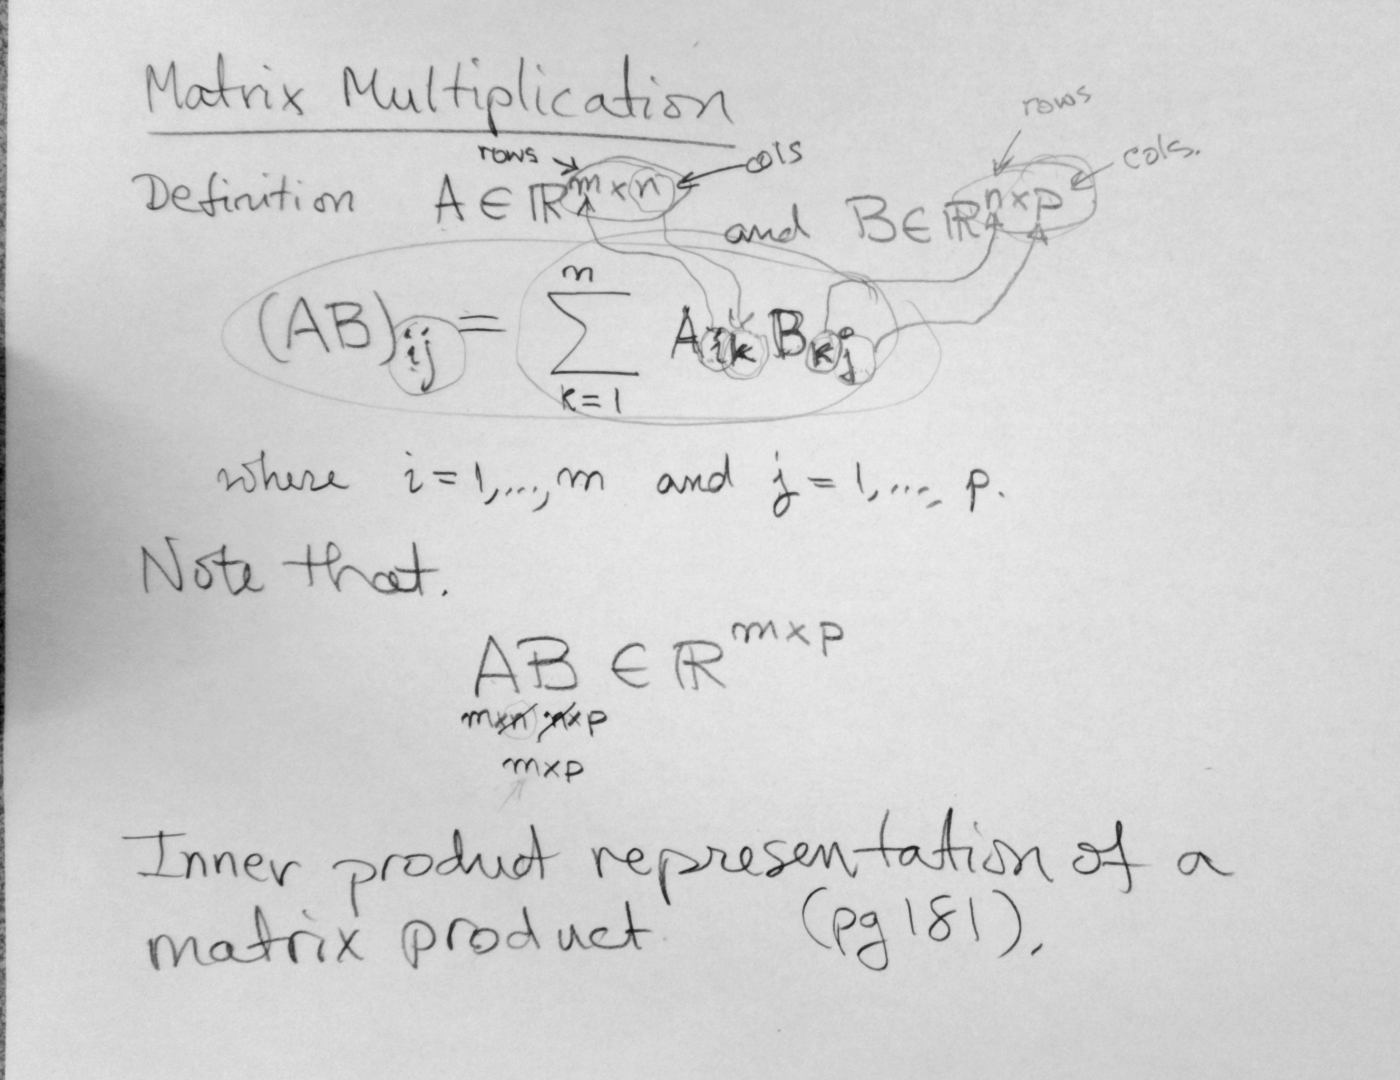 Matrix Multiplication
rows cols rows cols.
Definition A ∈ ℝ^{m×n} and B ∈ ℝ^{n×p}
(AB)_{ij} = \sum_{k=1}^{n} A_{ik} B_{kj}
where i = 1,..., m and j = 1,..., p.
Note that.
AB ∈ ℝ^{m×p}
m×n n×p
m×p
Inner product representation of a
matrix product (pg 181).